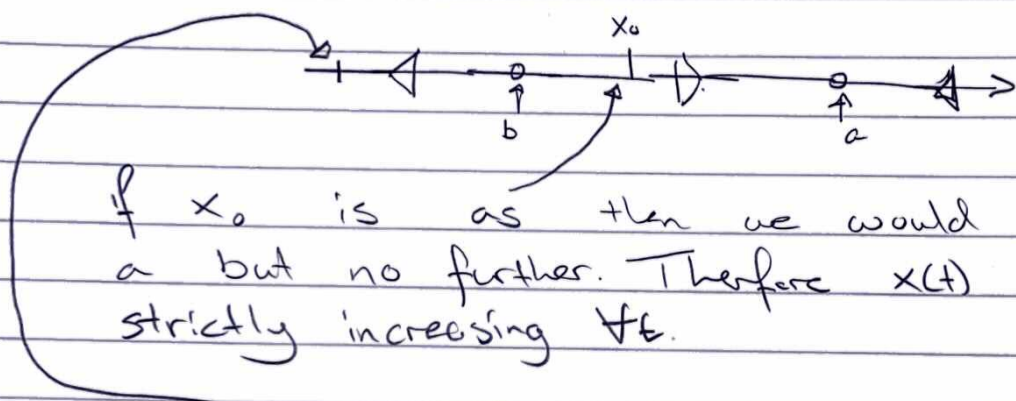 x₀
b
a
If x₀ is as then we would
a but no further. Therfore x(t)
strictly increasing ∀t.